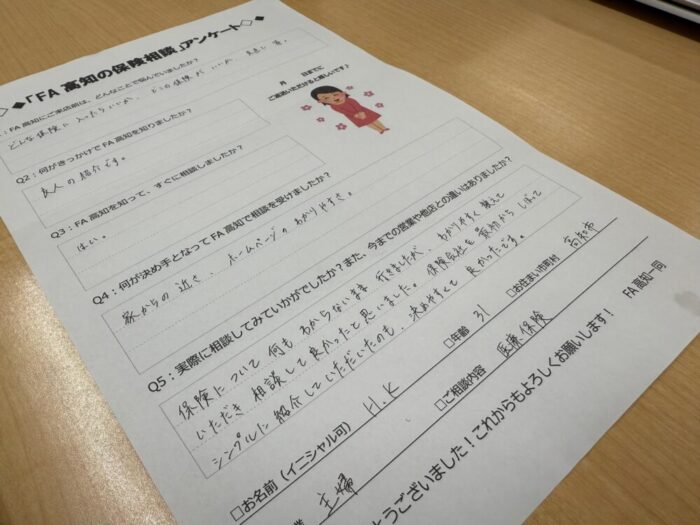 ◇◆「FA高知の保険相談」アンケート◇◆
月 日までに
ご返送いただけると嬉しいです♪
:FA高知にご来店前は、どんなことで悩んでいましたか?
どんな保険に入ったらいいか、どの保険がいいか
Q2:何がきっかけでFA高知を知りましたか?
友人の紹介です。
Q3:FA高知を知って、すぐに相談しましたか?
はい。
Q4:何が決め手となってFA高知で相談を受けましたか?
家からの近さ、ホームページのわかりやすさ。
Q5:実際に相談してみていかがでしたか?また、今までの営業や他店との違いはありましたか?
保険について何もわからないまま行きましたが、わかりやすく教えて
いただき相談して良かったと思いました。保険会社を最初からしぼって
シンプルに紹介していただいたのも、決めやすくて良かったです。
□お名前(イニシャル可) H.K □年齢 31 □お住まい市町村 高知市
業 主婦 □ご相談内容 医療保険
とうございました!これからもよろしくお願いします! FA高知一同